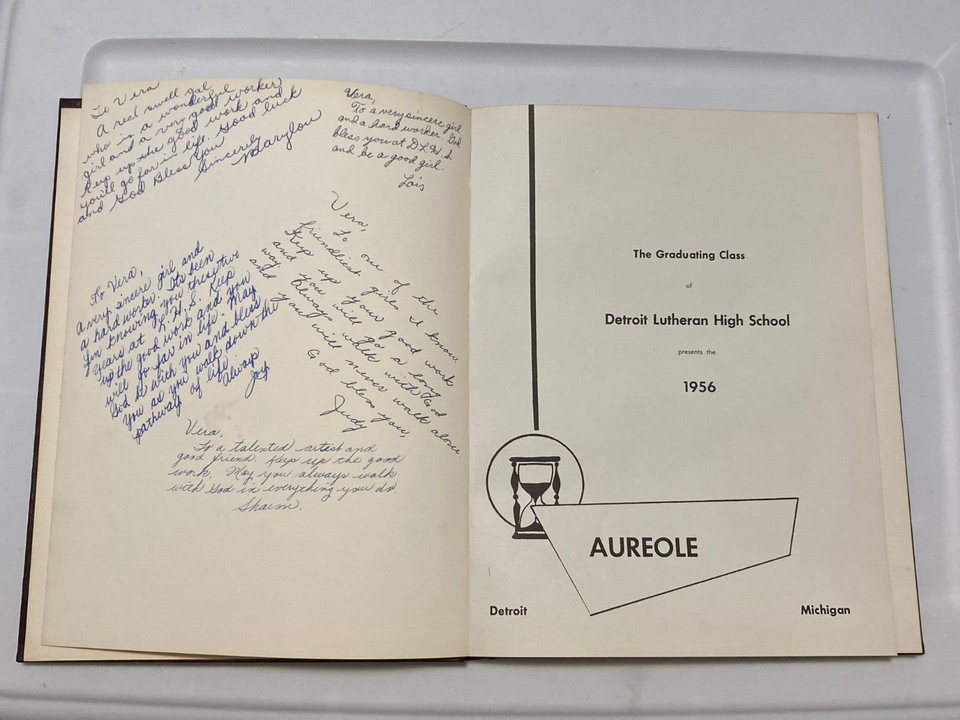 To Vera
A real swell gal
who is a wonderful
girl and a very good worker
Keep up the good work and
you'll go far in life. Good luck
and God Bless You
Sincerely
Marylou
Vera,
To a very sincere girl
and a hard worker. God
bless you at D.L.H.S.
and be a good girl.
Lois
Vera,
To one of the
friendliest girls I know.
Keep up your good work
and you will go a long
way. Always walk with God
and you will never walk alone.
God bless you,
Judy
To Vera,
A very sincere girl and
a hard worker. Its been
fun knowing you these two
years at L.H.S. Keep
up the good work and you
will go far in life. May
God be with you and bless
you as you walk down the
pathway of life
Always
Joy
Vera,
To a talented artist and
good friend. Keep up the good
work. May you always walk
with God in everything you do.
Sharon.
The Graduating Class
of
Detroit Lutheran High School
presents the
1956
AUREOLE
Detroit
Michigan